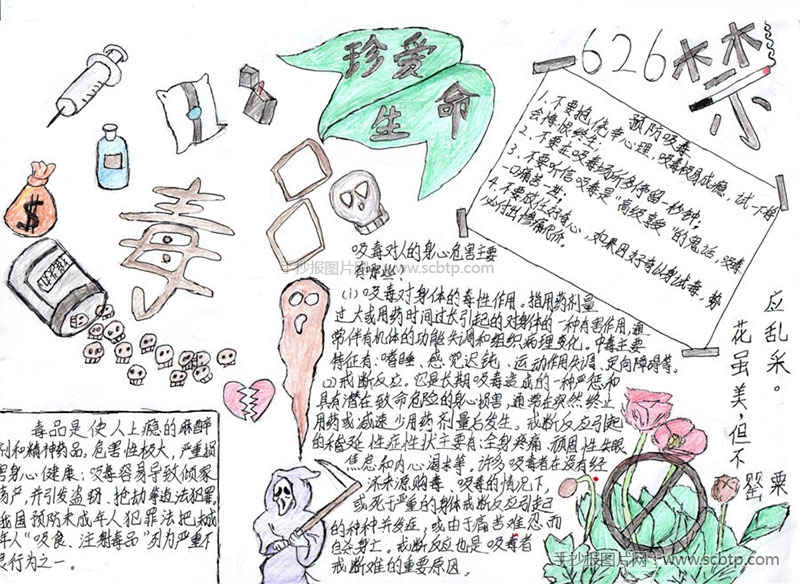 珍爱
生命
626禁
毒品
预防吸毒
1.不要抱侥幸心理,吸毒极易成瘾,试一下将
会悔恨终生。
2.不要在吸毒场所多停留一秒钟。
3.不要听信吸毒是“高级享受”的鬼话,吸毒
一口痛苦一世。
4.不要放任好奇心,如果因好奇以身试毒,势
必付出惨痛代价。
吸毒对人的身心危害主要
有哪些:
(1)吸毒对身体的毒性作用。指用药剂量
过大或用药时间过长引起的对身体的一种有害作用,通
常伴有机体的功能失调和组织病理变化。中毒主要
特征有:嗜睡、感觉迟钝、运动作用失调、定向障碍等。
(2)戒断反应。它是长期吸毒造成的一种严重和
具有潜在致命危险的身心损害,通常在突然终止
用药或减速少用药剂量后发生。戒断反应引起
的稽延性症性状主要有:全身疼痛 顽固性失眠
焦虑和内心渴求等。许多吸毒者在没有经
济来源购毒、吸毒的情况下,
或死于严重的身体戒断反应引起
的种种并发症,或由于痛苦难忍而
自杀身亡。戒断反应也是吸毒者
戒断难的重要原因。
毒品是使人上瘾的麻醉
剂和精神药品,危害性极大,严重损
害身心健康;吸毒容易导致倾家
荡产,并引发盗窃、抢劫等违法犯罪
我国预防未成年人犯罪法把未成
年人“吸食、注射毒品”列为严重不
良行为之一。
罂粟
花虽美,但不
应乱采。
手抄报图片网 www.scbtp.com
手抄报图片网:www.scbtp.com